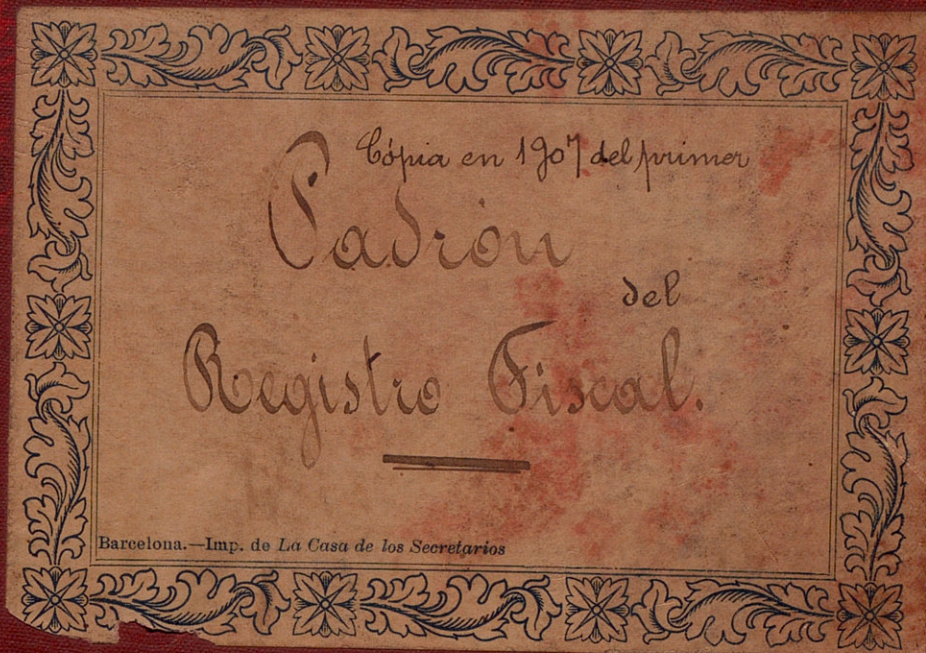 Cópia en 1907 del primer
Padrón
del
Registro Fiscal.
Barcelona.—Imp. de La Casa de los Secretarios